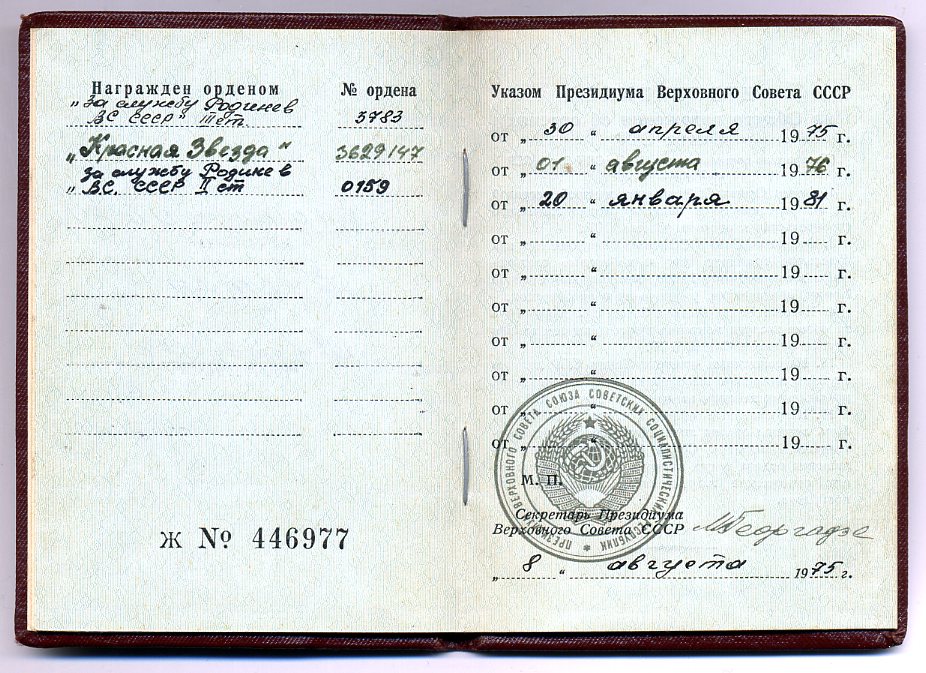 Награжден орденом
№ ордена
„за службу Родине в
ВС СССР" III ст.
3783
„Красная Звезда"
3629147
за службу Родине в
„ВС. СССР II ст
0159
Ж № 446977
Указом Президиума Верховного Совета СССР
от „ 30 “ апреля 1975 г.
от „ 01. “ августа 1976 г.
от „ 20 “ января 1981 г.
от „ “ 19 г.
от „ “ 19 г.
от „ “ 19 г.
от „ “ 19 г.
от „ “ 19 г.
от „ “ 19 г.
от „ “ 19 г.
ПРЕЗИДИУМ ВЕРХОВНОГО СОВЕТА СОЮЗА СОВЕТСКИХ СОЦИАЛИСТИЧЕСКИХ РЕСПУБЛИК
М. П.
Секретарь Президиума
Верховного Совета СССР
МГеоргадзе
„ 8 “ августа 1975 г.